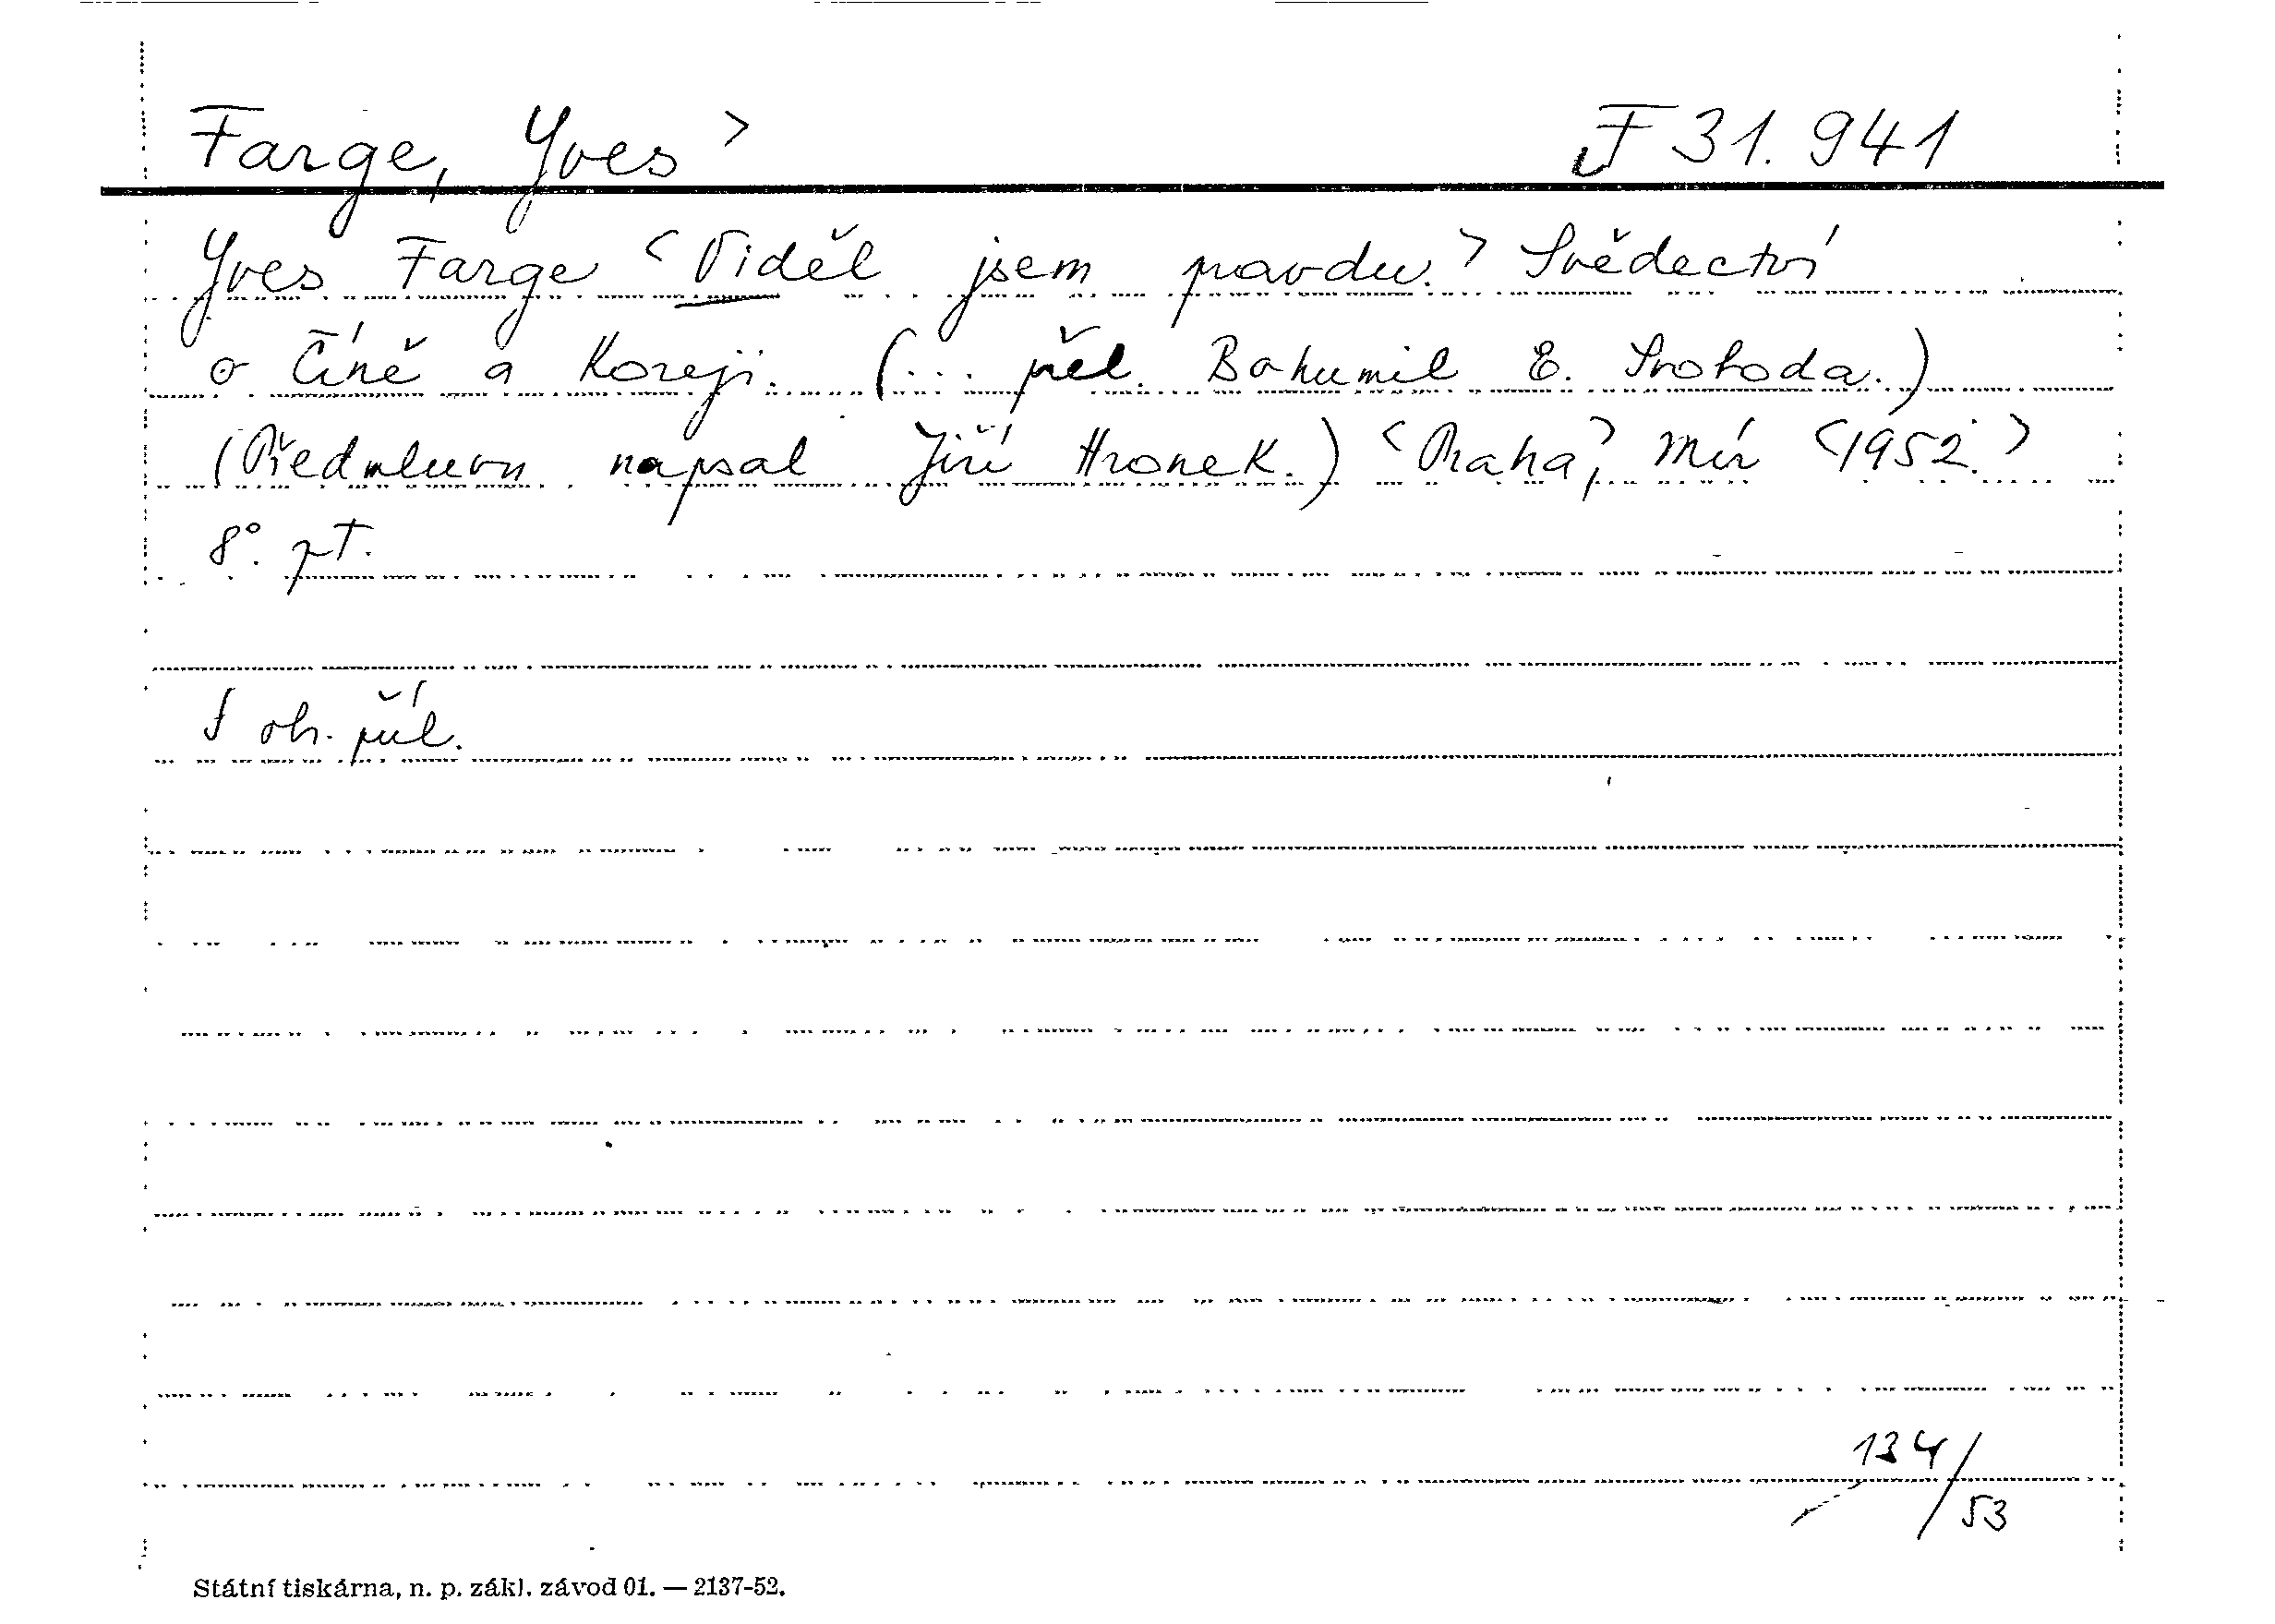 Farge, Yves > F 31.941
Yves Farge <Viděl jsem pravdu.> Svědectví
o Číně a Koreji. (... přel. Bohumil E. Svoboda.)
(Předmluvu napsal Jiří Hronek.) <Praha,> Mír <1952.>
8°. pt.
S obr. příl.
134/53
Státní tiskárna, n. p. zákl. závod 01. — 2137-52.